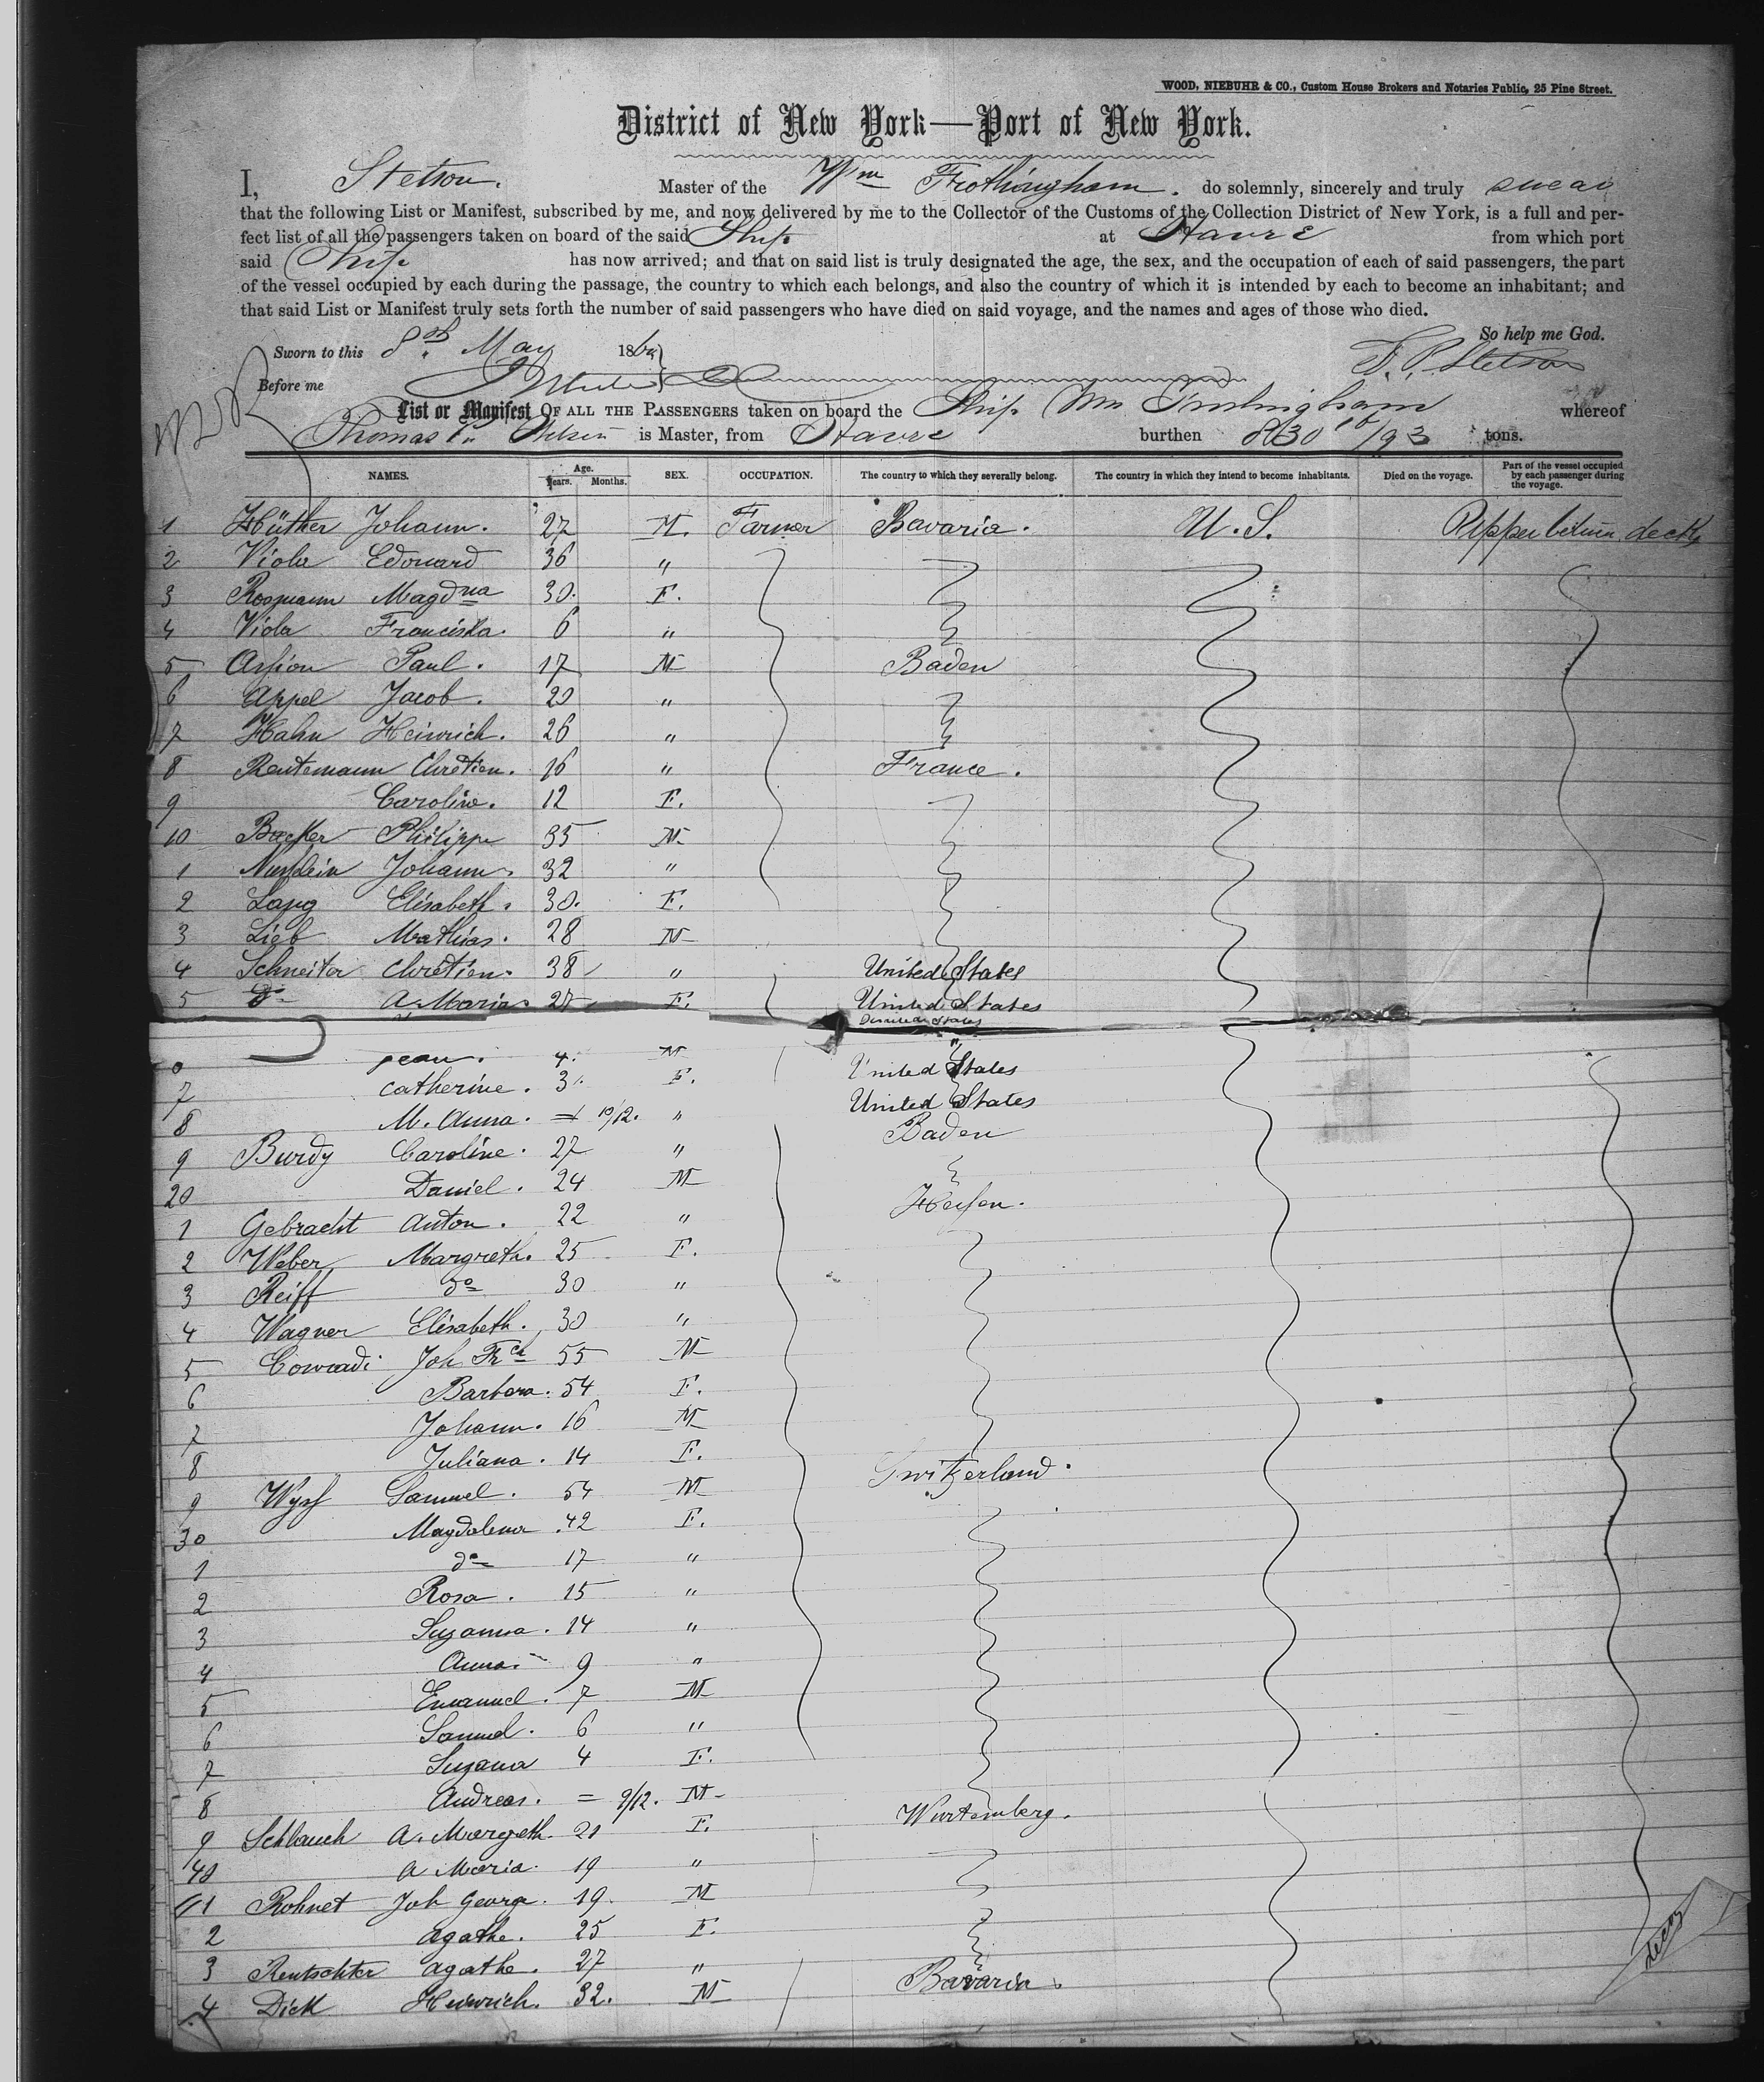 WOOD, NIEBUHR & CO., Custom House Brokers and Notaries Public, 25 Pine Street.
District of New York—Port of New York.
I, Stetson. Master of the Wm Frothingham. do solemnly, sincerely and truly swear
that the following List or Manifest, subscribed by me, and now delivered by me to the Collector of the Customs of the Collection District of New York, is a full and per-
fect list of all the passengers taken on board of the said Ship at Havre from which port
said Ship has now arrived; and that on said list is truly designated the age, the sex, and the occupation of each of said passengers, the part
of the vessel occupied by each during the passage, the country to which each belongs, and also the country of which it is intended by each to become an inhabitant; and
that said List or Manifest truly sets forth the number of said passengers who have died on said voyage, and the names and ages of those who died.
So help me God.
Sworn to this 8th May 186 T. P. Stetson
Before me
List or Manifest OF ALL THE PASSENGERS taken on board the Ship Wm Frothingham whereof
Thomas is Master, from Havre burthen 830 /93 tons.
NAMES. Age. Years. Months. SEX. OCCUPATION. The country to which they severally belong. The country in which they intend to become inhabitants. Died on the voyage. Part of the vessel occupied by each passenger during the voyage.
1 Hüther Johann. 27 M. Farmer Bavaria. U. S. Upper between decks
2 Viola Edouard 36 "
3 Magdna 30. F.
4 Viola Franciska. 6 "
5 Paul. 17 M Baden
6 Appel Jacob. 20 "
7 Hahn Heinrich. 26 "
8 Rentemann Chretien. 16 " France.
9 Caroline. 12 F.
10 Becker Philipp 35 M
1 Johann. 32 "
2 Lang Elisabeth. 30. F.
3 Lieb Mathias. 28 M
4 Schneiter Chretien. 38 " United States
5 do A. Maria 27 F. United States
United States
Jean. 4. M
7 Catherine. 3. F. United States
8 M. Anna. 10/12. " United States
9 Burdy Caroline. 27 " Baden
20 Daniel. 24 M
1 Gebracht Anton. 22 " Hessen.
2 Weber Margreth. 25 F.
3 Reiff do 30 "
4 Wagner Elisabeth. 30 "
5 Conradi Joh Frch 55 M
6 Barbara. 54 F.
7 Johann. 16 M
8 Juliana. 14 F.
9 Wyss Samuel. 54 M Switzerland.
30 Magdalena 42 F.
1 do 17 "
2 Rosa. 15 "
3 Suzanna. 14 "
4 Anna. 9 "
5 Emanuel. 7 M
6 Samuel. 6 "
7 Suzana 4 F.
8 Andreas. = 9/12. M
9 Schlauch A. Margeth. 21 F. Wurtemberg.
40 A Maria. 19 "
41 Rohnet Joh George. 19. M
2 Agathe. 25 F.
3 Rentschler Agathe. 27 "
4 Dick Heinrich. 32. M Bavaria